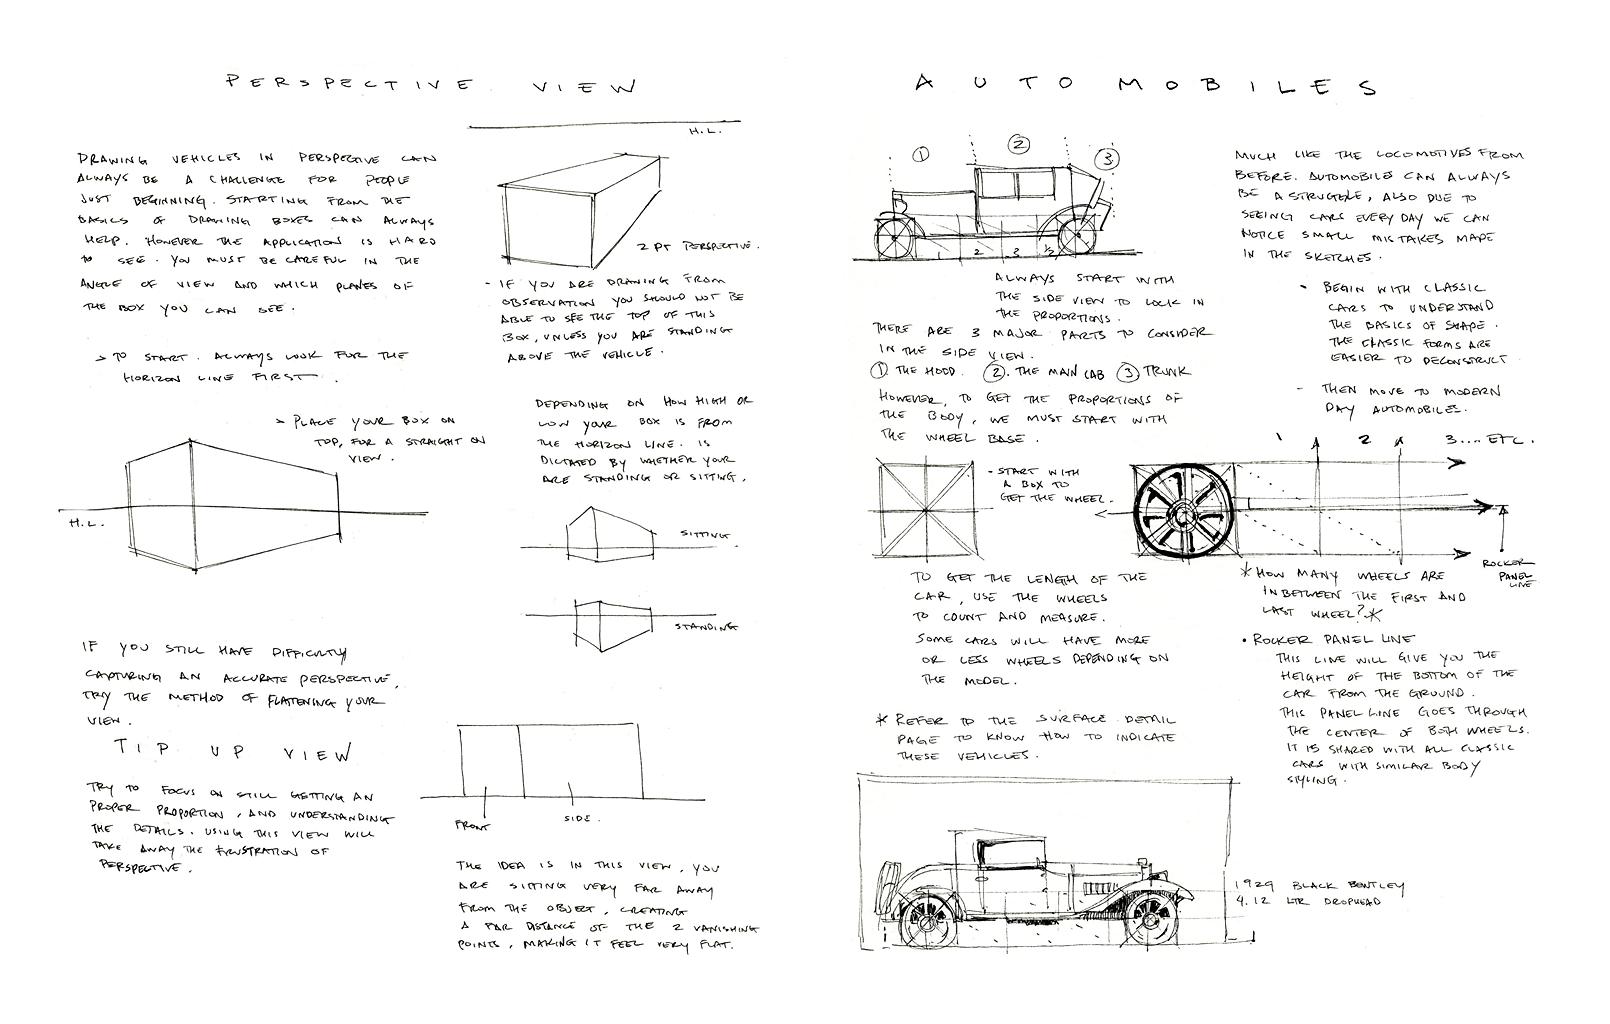 PERSPECTIVE VIEW
DRAWING VEHICLES IN PERSPECTIVE CAN
ALWAYS BE A CHALLENGE FOR PEOPLE
JUST BEGINNING. STARTING FROM THE
BASICS OF DRAWING BOXES CAN ALWAYS
HELP. HOWEVER THE APPLICATION IS HARD
TO SEE. YOU MUST BE CAREFUL IN THE
ANGLE OF VIEW AND WHICH PLANES OF
THE BOX YOU CAN SEE.
> TO START. ALWAYS LOOK FOR THE
HORIZON LINE FIRST.
> PLACE YOUR BOX ON
TOP, FOR A STRAIGHT ON
VIEW.
H.L.
IF YOU STILL HAVE DIFFICULTY
CAPTURING AN ACCURATE PERSPECTIVE,
TRY THE METHOD OF FLATTENING YOUR
VIEW.
TIP UP VIEW
TRY TO FOCUS ON STILL GETTING AN
PROPER PROPORTION, AND UNDERSTANDING
THE DETAILS. USING THIS VIEW WILL
TAKE AWAY THE FRUSTRATION OF
PERSPECTIVE.
H.L.
2 PT PERSPECTIVE.
- IF YOU ARE DRAWING FROM
OBSERVATION YOU SHOULD NOT BE
ABLE TO SEE THE TOP OF THIS
BOX, UNLESS YOU ARE STANDING
ABOVE THE VEHICLE.
DEPENDING ON HOW HIGH OR
LOW YOUR BOX IS FROM
THE HORIZON LINE. IS
DICTATED BY WHETHER YOUR
ARE STANDING OR SITTING.
SITTING
STANDING
FRONT
SIDE.
THE IDEA IS IN THIS VIEW, YOU
ARE SITTING VERY FAR AWAY
FROM THE OBJECT, CREATING
A FAR DISTANCE OF THE 2 VANISHING
POINTS, MAKING IT FEEL VERY FLAT.
AUTOMOBILES
1 2 3
1 2 3 1/2
ALWAYS START WITH
THE SIDE VIEW TO LOCK IN
THE PROPORTIONS.
THERE ARE 3 MAJOR PARTS TO CONSIDER
IN THE SIDE VIEW.
1 THE HOOD. 2. THE MAIN CAB 3 TRUNK
HOWEVER, TO GET THE PROPORTIONS OF
THE BODY, WE MUST START WITH
THE WHEEL BASE.
- START WITH
A BOX TO
GET THE WHEEL.
TO GET THE LENGTH OF THE
CAR, USE THE WHEELS
TO COUNT AND MEASURE.
SOME CARS WILL HAVE MORE
OR LESS WHEELS DEPENDING ON
THE MODEL.
* REFER TO THE SURFACE DETAIL
PAGE TO KNOW HOW TO INDICATE
THESE VEHICLES.
MUCH LIKE THE LOCOMOTIVES FROM
BEFORE. AUTOMOBILES CAN ALWAYS
BE A STRUGGLE, ALSO DUE TO
SEEING CARS EVERY DAY WE CAN
NOTICE SMALL MISTAKES MADE
IN THE SKETCHES.
- BEGIN WITH CLASSIC
CARS TO UNDERSTAND
THE BASICS OF SHAPE.
THE CLASSIC FORMS ARE
EASIER TO DECONSTRUCT
- THEN MOVE TO MODERN
DAY AUTOMOBILES.
1 2 3.... ETC.
ROCKER
PANEL
LINE
* HOW MANY WHEELS ARE
INBETWEEN THE FIRST AND
LAST WHEEL? *
• ROCKER PANEL LINE
THIS LINE WILL GIVE YOU THE
HEIGHT OF THE BOTTOM OF THE
CAR FROM THE GROUND.
THIS PANEL LINE GOES THROUGH
THE CENTER OF BOTH WHEELS.
IT IS SHARED WITH ALL CLASSIC
CARS WITH SIMILAR BODY
STYLING.
1929 BLACK BENTLEY
4.12 LTR DROPHEAD